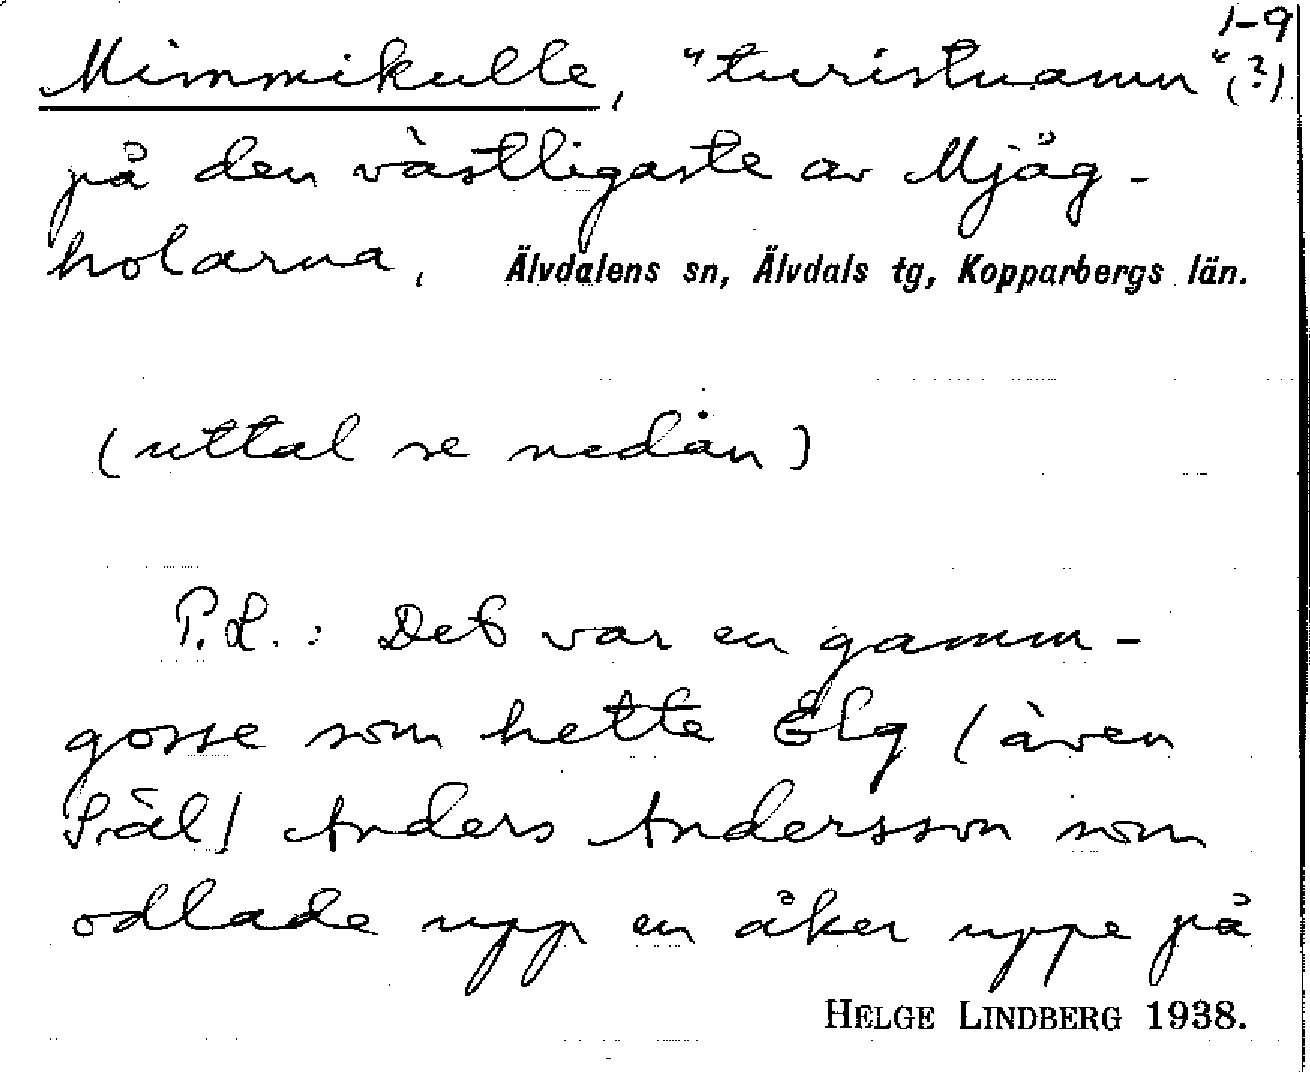 1-9
Mimmikulle, "turistnamn" (?)
på den västligaste av Mjåg-
holarna, Älvdalens sn, Älvdals tg, Kopparbergs län.
(uttal se nedan)
P.L.: Det var en gamm-
gosse som hette Elg (även
Präl) Anders Andersson som
odlade upp en åker uppe på
HELGE LINDBERG 1938.